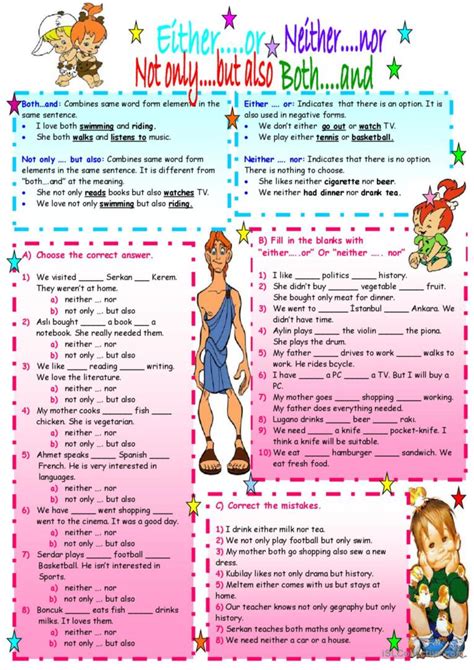 Either....or Neither....nor
Not only....but also Both....and
Both...and: Combines same word form elements in the
same sentence.
• I love both swimming and riding.
• She both walks and listens to music.
Not only .... but also: Combines same word form
elements in the same sentence. It is different from
"both...and" at the meaning.
• She not only reads books but also watches TV.
• We love not only swimming but also riding.
Either .... or: Indicates that there is an option. It is
also used in negative forms.
• We don't either go out or watch TV.
• We play either tennis or basketball.
Neither .... nor: Indicates that there is no option.
There is nothing to choose.
• She likes neither cigarette nor beer.
• We neither had dinner nor drank tea.
A) Choose the correct answer.
1) We visited _____ Serkan ___ Kerem.
They weren't at home.
a) neither .... nor
b) not only ... but also
2) Aslı bought _____ a book ___ a
notebook. She really needed them.
a) neither ... nor
b) not only ... but also
3) We like _____ reading _____ writing.
We love the literature.
a) neither ... nor
b) not only ... but also
4) My mother cooks _____ fish ____
chicken. She is vegetarian.
a) neither ... nor
b) not only ... but also
5) Ahmet speaks _____ Spanish _____
French. He is very interested in
languages.
a) neither ... nor
b) not only ... but also
6) We have _____ went shopping _____
went to the cinema. It was a good day.
a) neither ... nor
b) not only ... but also
7) Serdar plays _____ football _____
Basketball. He isn't interested in
Sports.
a) neither ... nor
b) not only ... but also
8) Boncuk _____ eats fish _____ drinks
milk. He loves them.
a) neither ... nor
b) not only ... but also
B) Fill in the blanks with
"either.... or" Or "neither .... nor"
1) I like _____ politics _____ history.
2) She didn't buy _____ vegetable _____ fruit.
She bought only meat for dinner.
3) We went to _____ İstanbul _____ Ankara. We
didn't have time.
4) Aylin plays _____ the violin _____ the piona.
She plays the drum.
5) My father _____ drives to work _____ walks to
work. He rides bicycle.
6) I have _____ a PC _____ a TV. But I will buy a
PC.
7) My mother goes _____ shopping _____ working.
My father does everything needed.
8) Lugano drinks _____ beer _____ rakı.
9) We need _____ a knife _____ pocket-knife. I
think a knife will be suitable.
10) We eat _____ hamburger _____ sandwich. We
eat fresh food.
C) Correct the mistakes.
1) I drink either milk nor tea.
2) We not only play football but only swim.
3) My mother both go shopping also sew a new
dress.
4) Kubilay likes not only drama but history.
5) Meltem comes with us either today or
tomorrow.
6) Our teacher knows not only geography but only
history.
7) Serkan teaches both maths only geometry.
8) We need neither a car or a house.